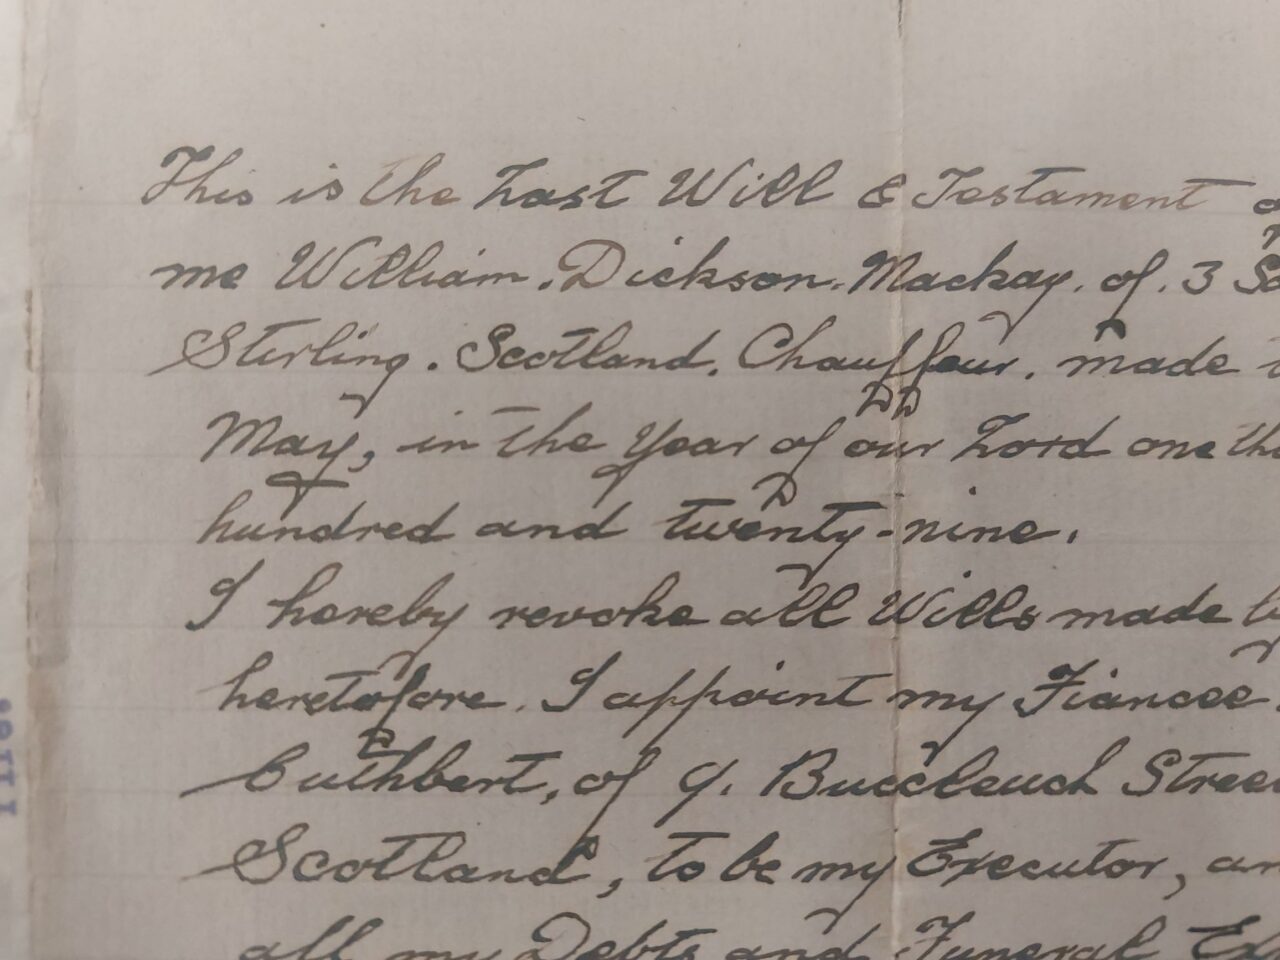 This is the Last Will & Testament
me William. Dickson. Mackay. of. 3
Stirling. Scotland. Chauffeur. made
May, in the Year of our Lord one
hundred and twenty-nine.
I hereby revoke all Wills made
heretofore. I appoint my Fiancee.
Cuthbert, of 9. Buccleuch
Scotland, to be my Executor,
all my Debts and Funeral